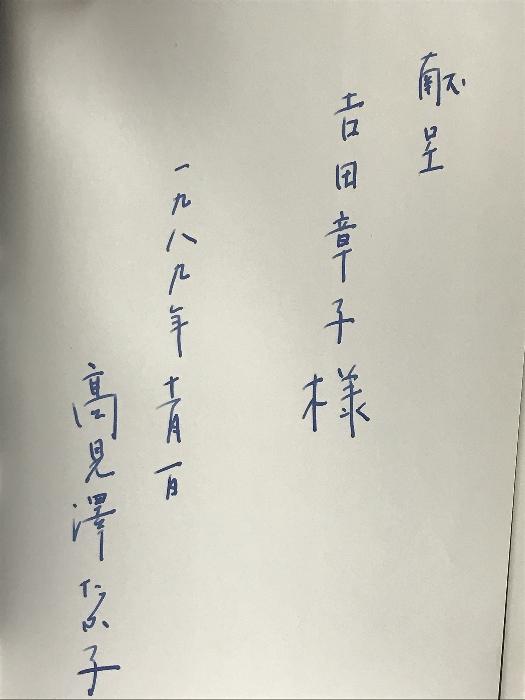 献呈
吉田章子様
一九八九年十一月一日
高見澤たか子